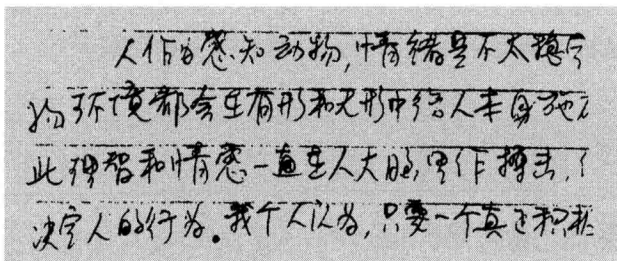 人作为感知动物,情绪是不太稳定
物环境都会在有形和无形中给人本身施
此理智和情感一直在人大脑里作搏击,
决定人的行为。我个人认为,只要一个真正积极